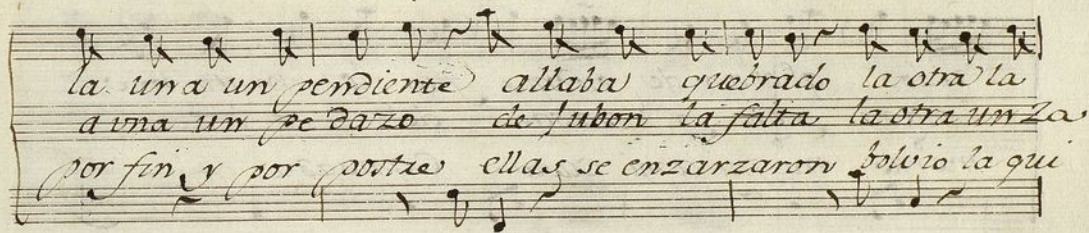 la una un pendiente allaba quebrado la otra la
a una un pedazo de jubon la falta la otra un za
por fin y por postre ellas se enzarzaron bolvio la qui